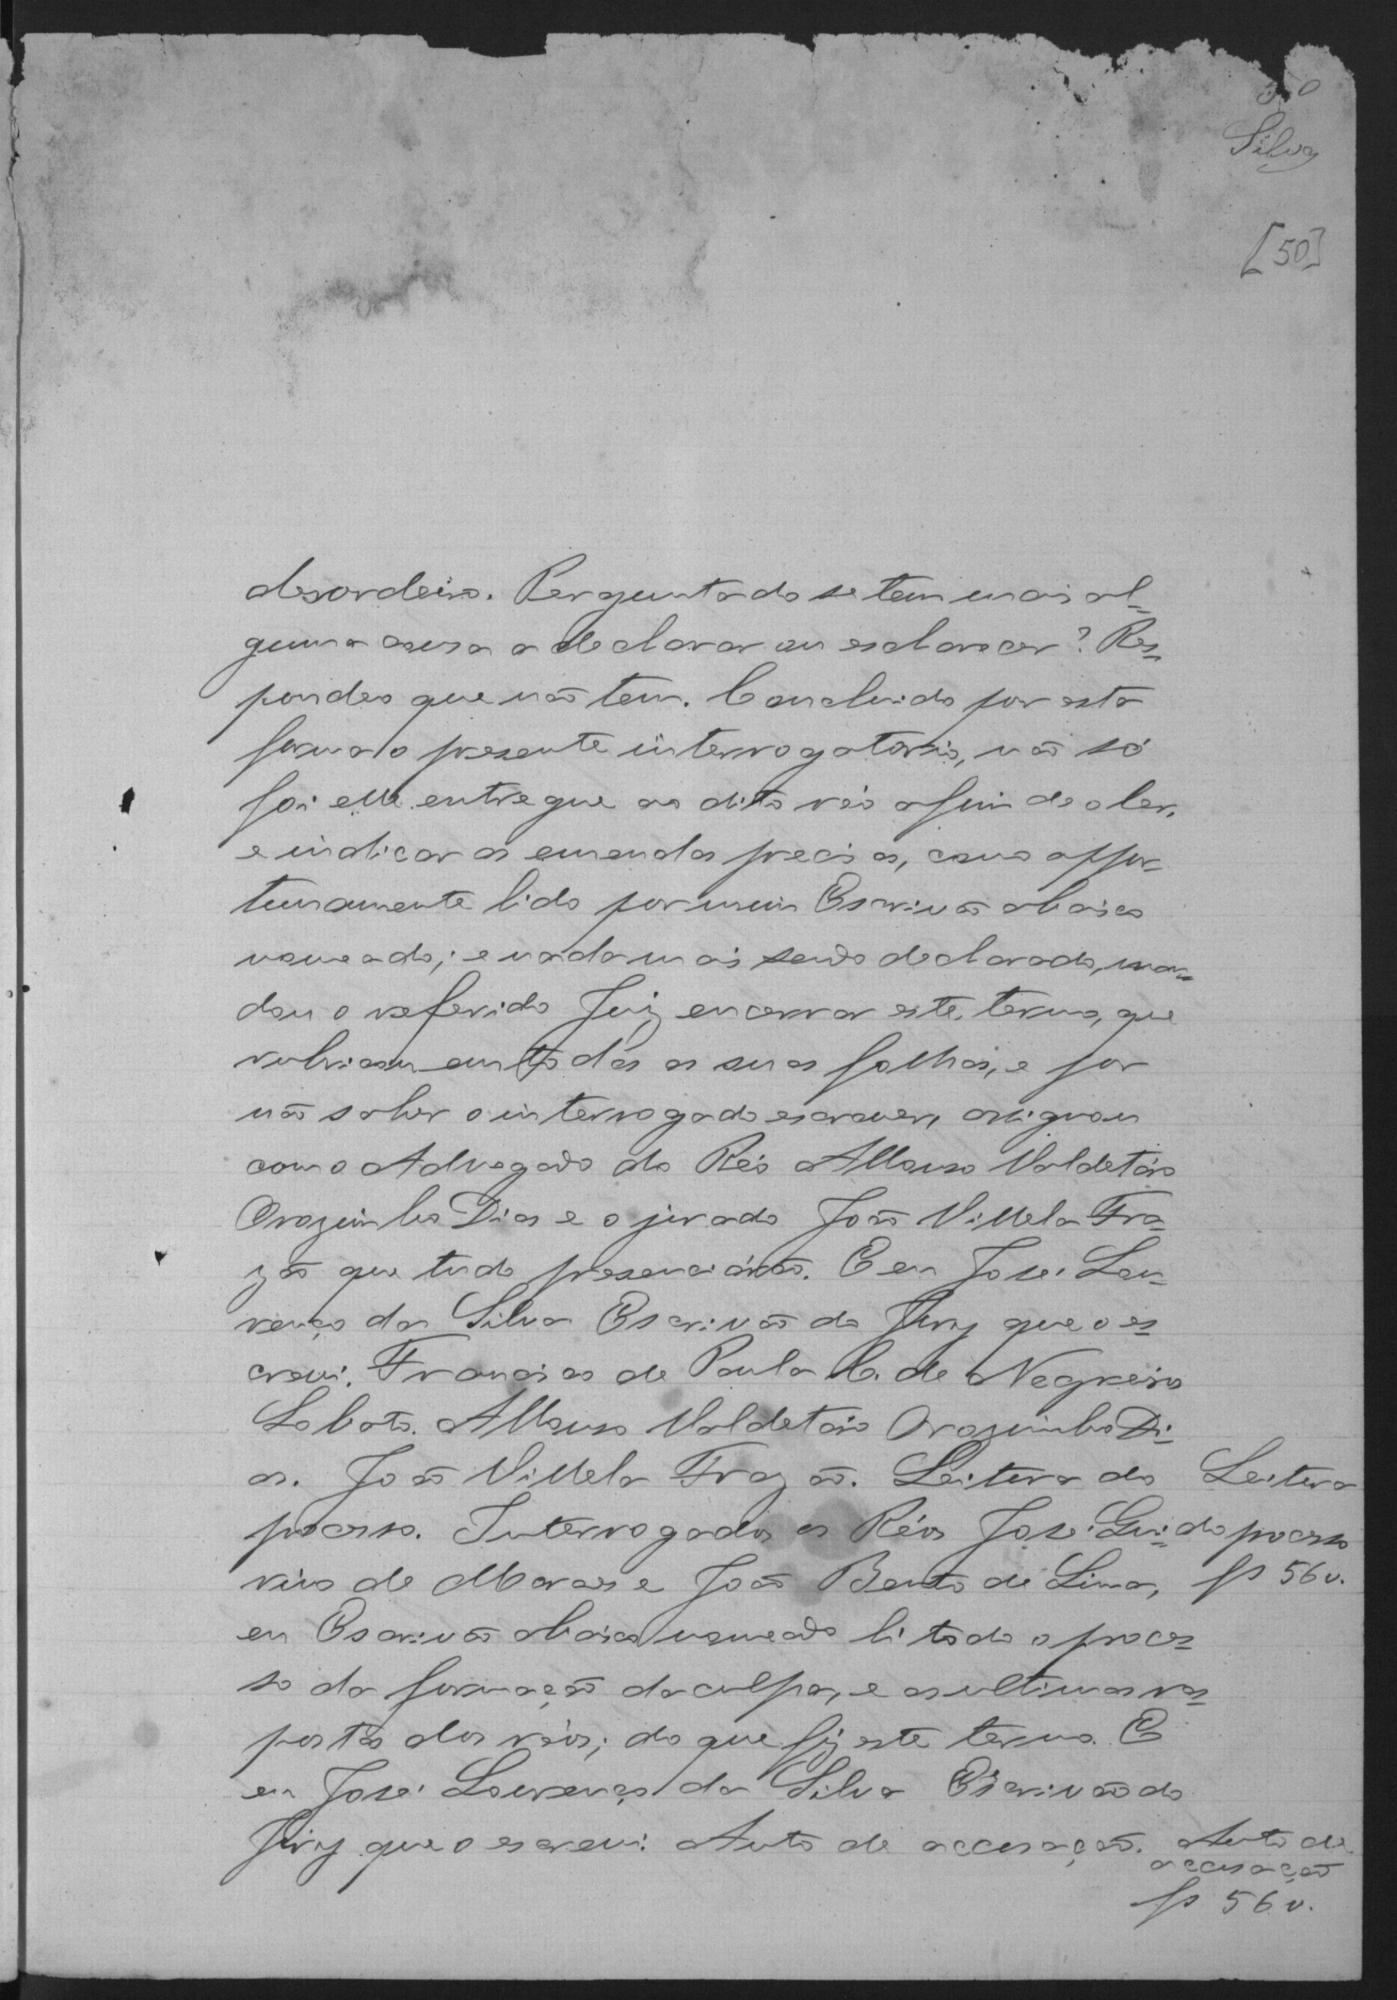 50
Silva
[50]
desordeiro. Perguntado se tem mais al-
guma cousa a declarar ou esclarecer? Res-
pondeo que não tem. Concluido por esta
forma o presente interrogatorio, não só
foi elle entregue ao dito réo afim de o ler,
e indicar as emendas precisas, como oppor-
tunamente lido por mim Escrivão abaixo
nomeado; e nada mais sendo declarado, man-
dou o referido Juiz encerrar este termo, que
rubricou em todas as suas folhas, e por
não saber o interrogado escrever, assignou
com o Advogado do Réo Affonso Valdetáro
Orozimbo Dias e o jurado João Villela Fra-
zão que tudo presenciárão. E eu José Lou-
renço da Silva Escrivão do Jury que o es-
crevi. Francisco de Paula C. de Negreiros
Lobato. Affonso Valdetáro Orozimbo Di-
as. João Villela Frazão. Leitura do
processo. Interrogados os Réos José Gui-
rino de Moraes e João Bento de Lima,
eu Escrivão abaixo nomeado li todo o proces-
so da formação da culpa, e as ultimas res-
postas dos réos; do que fiz este termo. E
eu José Lourenço da Silva Escrivão do
Jury que o escrevi. Auto de accusação.
Leitura
do processo
fs 56 v.
Auto de
accusação
fs 56 v.